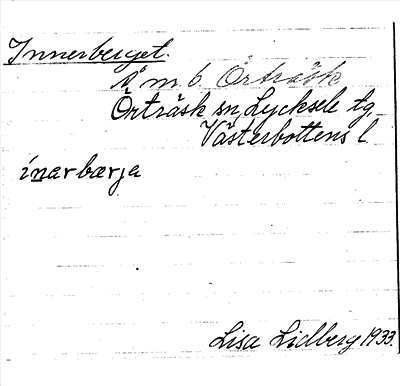 Innerberget.
Å m 6 Örträsk
Örträsk sn, Lycksele tg,
Västerbottens l
inarbærja
Lisa Lidberg 1933.